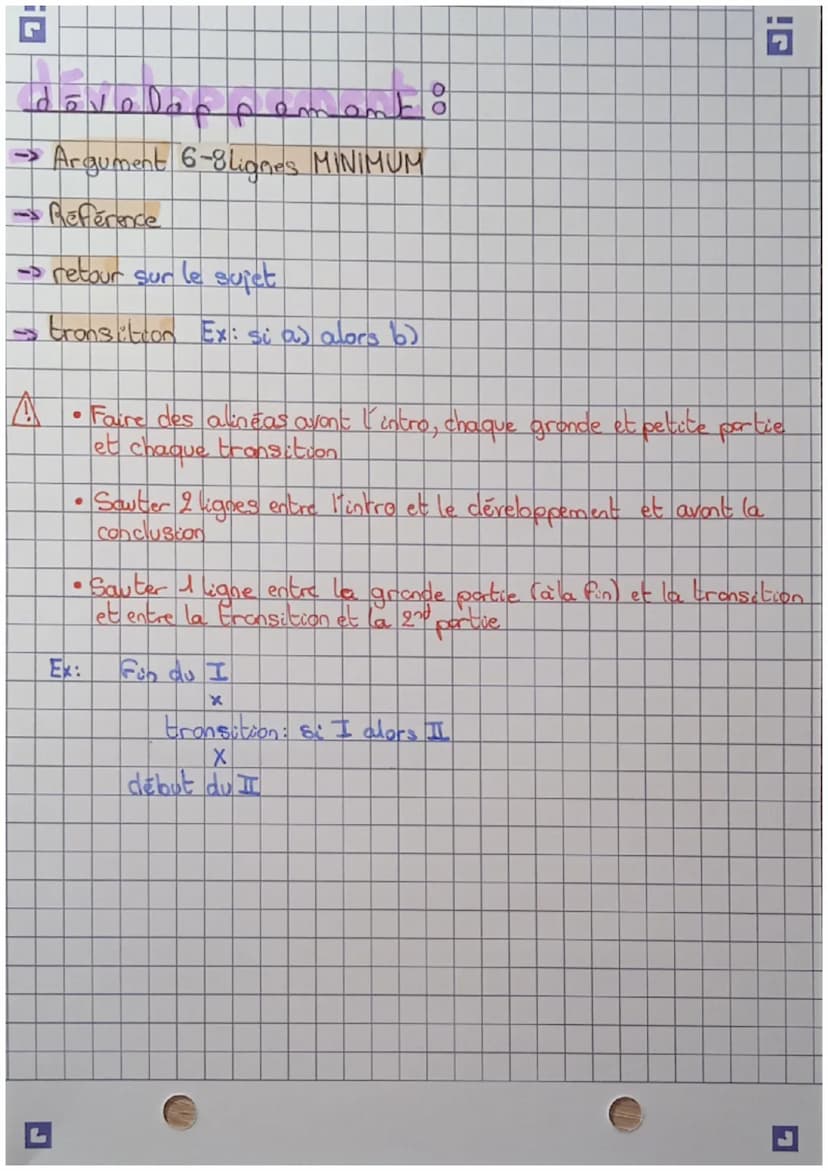 développement :
→ Argument 6-8 lignes MINIMUM
→ Référence
→ retour sur le sujet
→ transition Ex: si a) alors b)
⚠ • Faire des alinéas avant l'intro, chaque grande et petite partie
et chaque transition
• Sauter 2 lignes entre l'intro et le développement et avant la
conclusion
• Sauter 1 ligne entre la grande partie (à la fin) et la transition
et entre la transition et la 2nd partie
Ex: Fin du I
x
transition: si I alors II
x
début du II